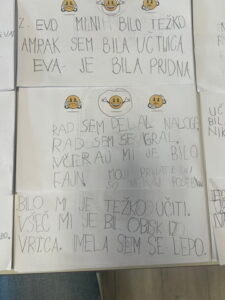 Z EVO MI NI BILO TEŽKO
AMPAK SEM BILA UČTLJICA.
EVA JE BILA PRIDNA.
RAD SEM DELAL NALOGE.
RAD SEM SE IGRAL.
VČERAJ MI JE BILO
FAJN.
BILO MI JE TEŽKO UČITI.
VŠEČ MI JE BIL OBISK IZ
VRTCA. IMELA SEM SE LEPO.